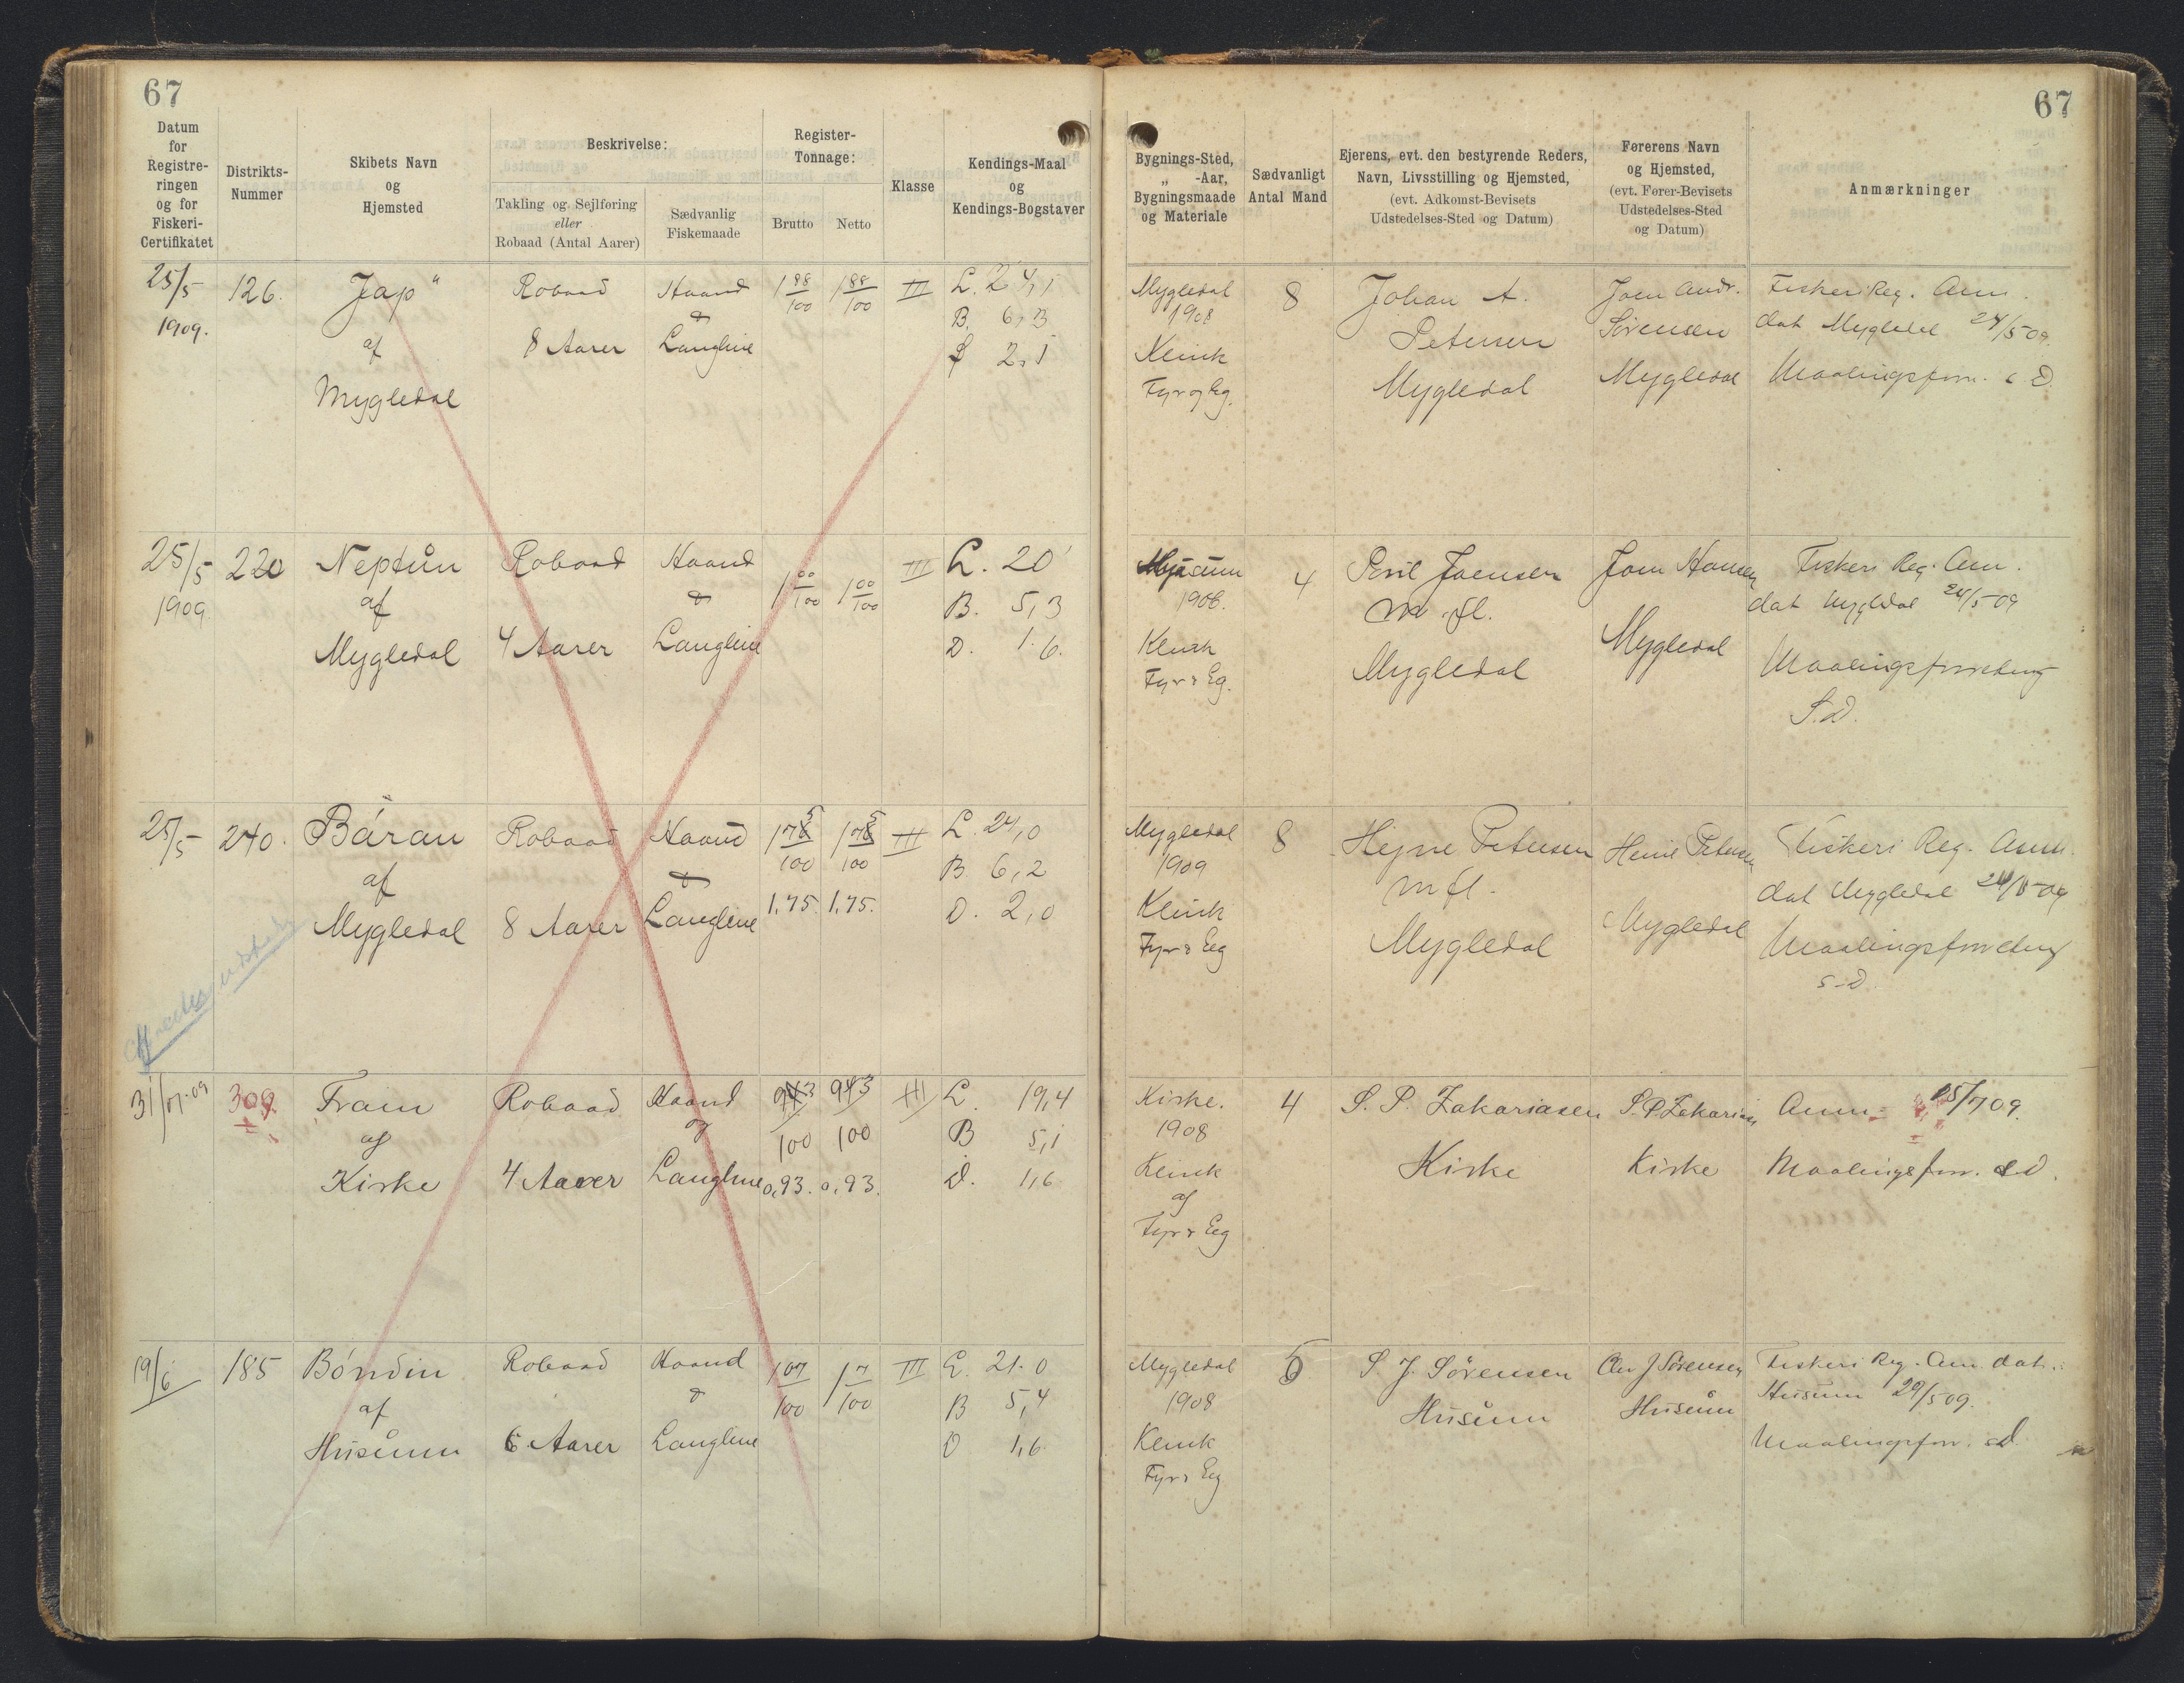 67
67
Datum
for
Registre-
ringen
og for
Fiskeri-
Certifikatet
Distrikts-
Nummer
Skibets Navn
og
Hjemsted
Beskrivelse:
Takling og Sejlføring
eller
Robaad (Antal Aarer)
Sædvanlig
Fiskemaade
Register-
Tonnage:
Brutto
Netto
Klasse
Kendings-Maal
og
Kendings-Bogstaver
Bygnings-Sted,
„ -Aar,
Bygningsmaade
og Materiale
Sædvanligt
Antal Mand
Ejerens, evt. den bestyrende Reders,
Navn, Livsstilling og Hjemsted,
(evt. Adkomst-Bevisets
Udstedelses-Sted og Datum)
Førerens Navn
og Hjemsted,
(evt. Fører-Bevisets
Udstedelses-Sted
og Datum)
Anmærkninger
25/5
1909.
126.
Jap"
af
Mygledal
Robaad
8 Aarer
Haand
&
Langline
1 88/100
1 88/100
III
L. 24,1
B. 6,3
D 2,1
Mygledal
1908
Klink
Fyr og Eg.
8
Johan A.
Petersen
Mygledal
Joen Andr.
Sørensen
Mygledal
Fiskeri Reg. Anm.
dat Mygledal 24/5 09.
Maalingsforr. s D.
25/5
1909
220
Neptun
af
Mygledal
Robaad
4 Aarer
Haand
&
Langline
1 00/100
1 00/100
III
L. 20'
B. 5,3
D. 1.6.
1908.
Klink
Fyr & Eg.
4
Joensen
m fl.
Mygledal
Joen Hansen
Mygledal
Fiskeri Reg. Anm.
dat Mygledal 24/5 09
Maalingsforretning
S.D.
25/5
240.
Báran
af
Mygledal
Robaad
8 Aarer
Haand
&
Langline
1 75/100
1 75/100
1,75.
1,75.
III
L. 24,0
B. 6,2
D. 2,0
Mygledal
1909
Klink
Fyr & Eg
8
Hejne Petersen
m fl.
Mygledal
Heine Petersen
Mygledal
Fiskeri Reg. Anm.
dat Mygledal 24/5 09
Maalingsforretning
s D
31/7 09
309
Fram
af
Kirke
Robaad
4 Aarer
Haand
og
Langline
93/100
93/100
0,93.
0,93.
III
L. 19,4
B 5,1
D. 1,6
Kirke.
1908
Klink
af
Fyr & Eg
4
S. P. Zakariasen
Kirke
S. P. Zakarias
Kirke
Anm. 25/7 09.
Maalingsforr. s D.
19/6
185
Bóndin
af
Húsum
Robaad
6 Aarer
Haand
&
Langline
1 07/100
1 7/100
III
L. 21.0
B 5,4
D 1,6
Mygledal
1908
Klink
Fyr & Eg
6
S. J. Sørensen
Húsum
J Sørensen
Húsum
Fiskeri Reg. Anm dat.
Húsum 29/5 09.
Maalingsforr. s d.